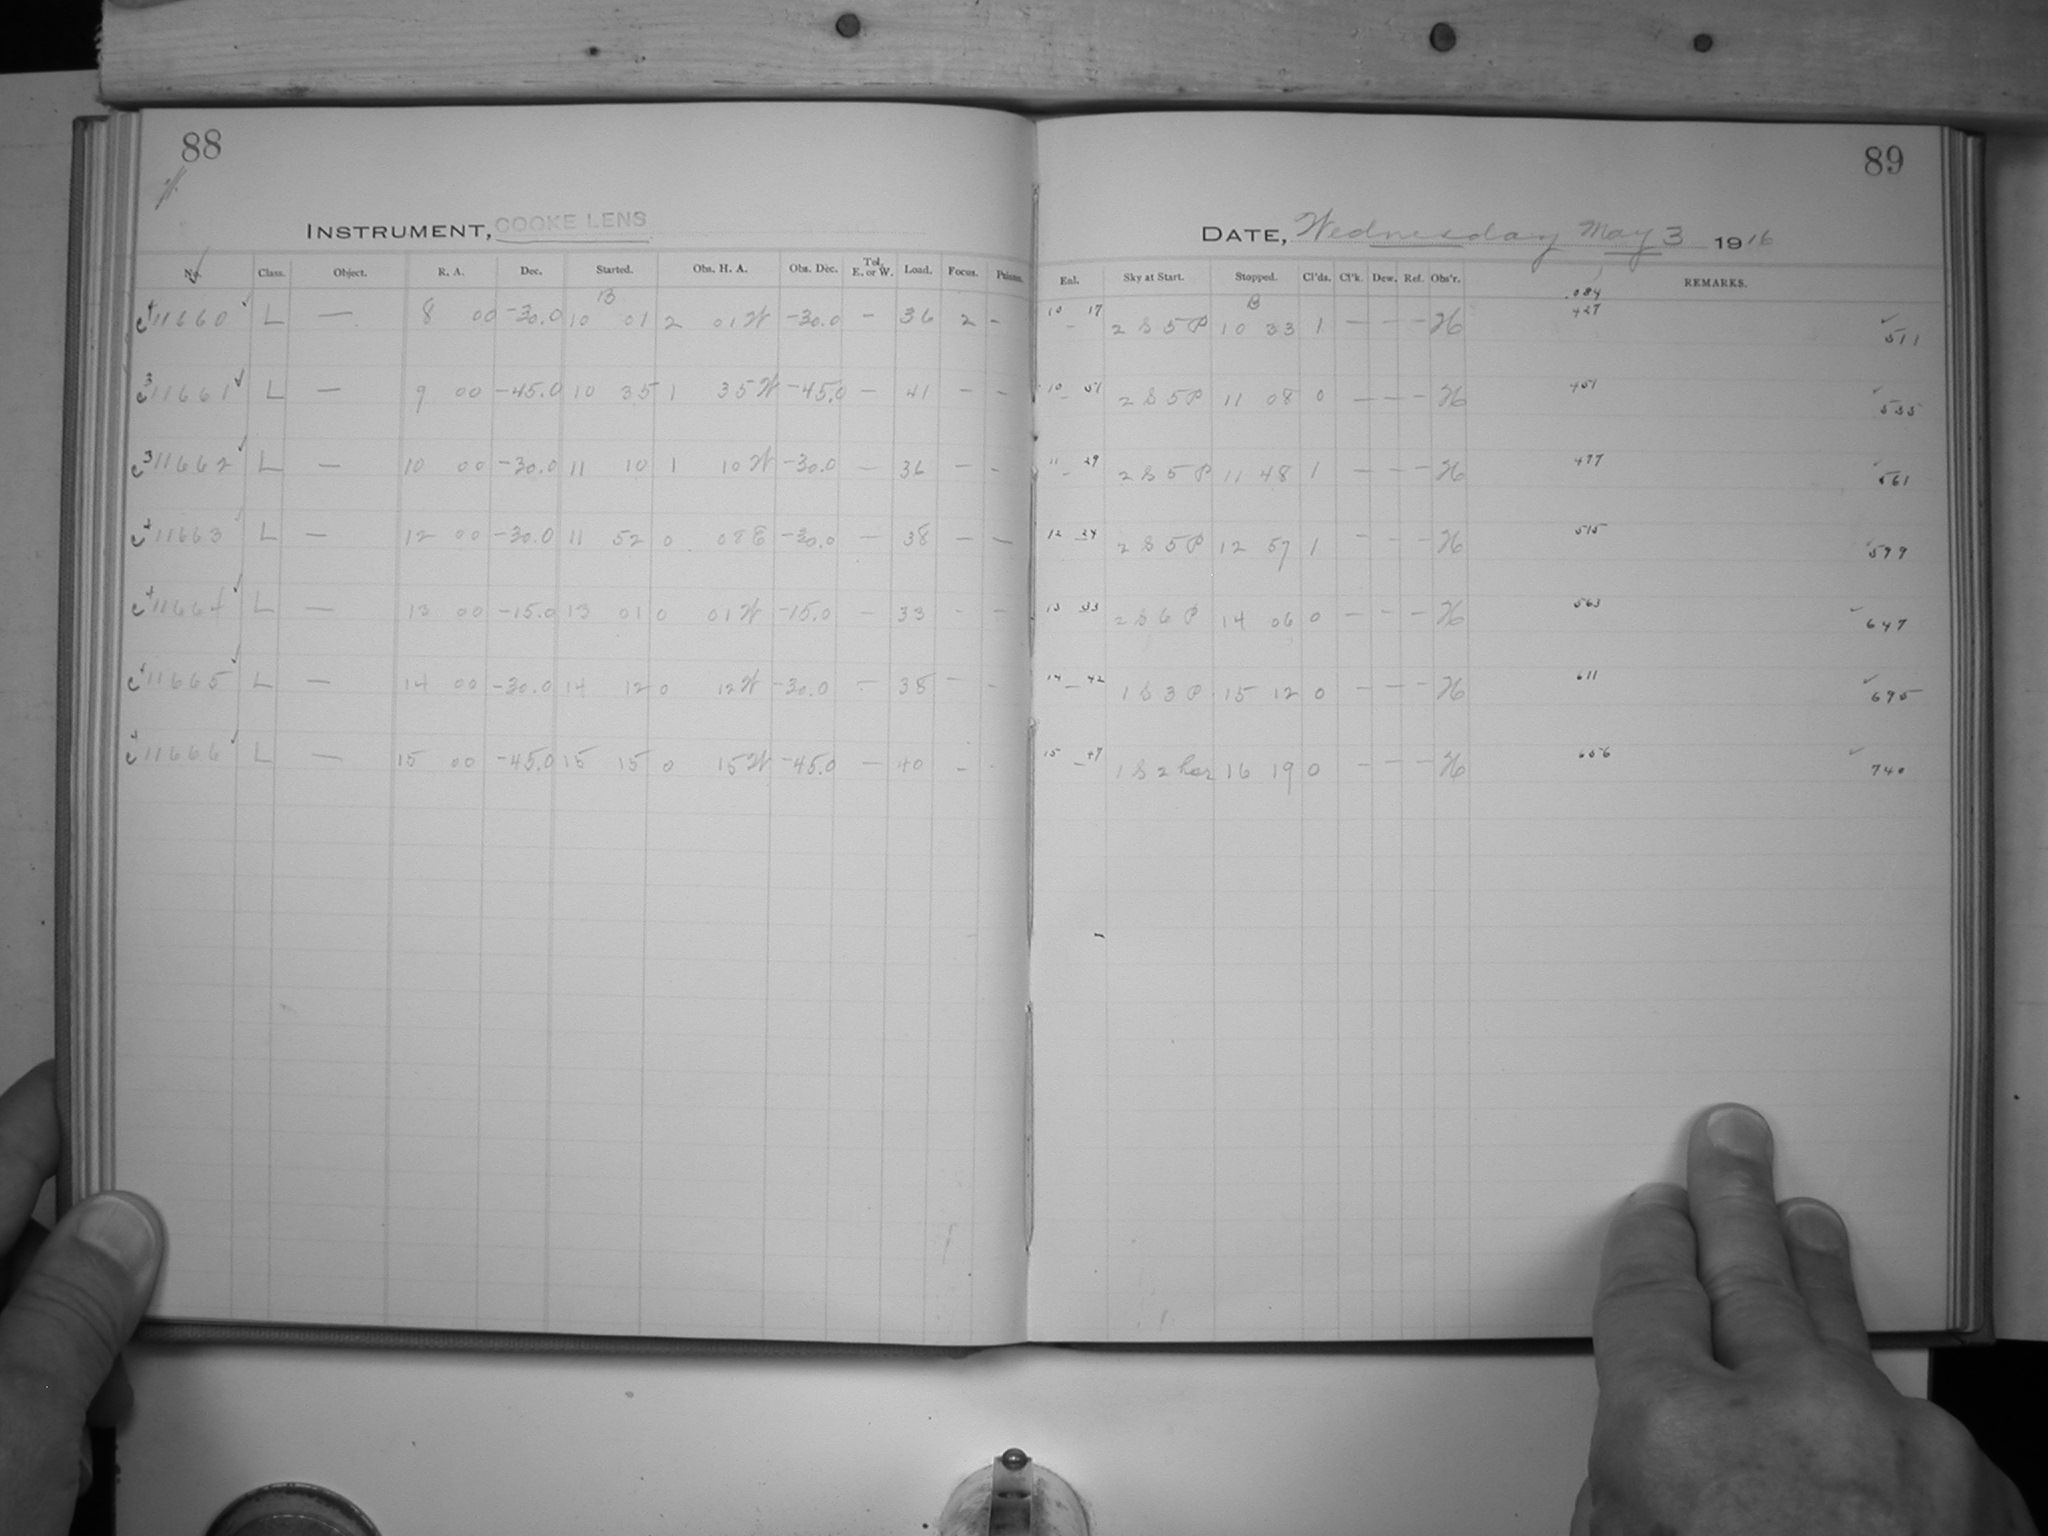 88
INSTRUMENT, COOKE LENS
No. Class. Object. R. A. Dec. Started. Obs. H. A. Obs. Dec. Tel. E. or W. Load. Focus. Prisms.
B
11660 L — 8 00 -30.0 10 01 2 01 W -30.0 — 36 2 -
11661 L — 9 00 -45.0 10 35 1 35 W -45.0 — 41 - -
11662 L — 10 00 -30.0 11 10 1 10 W -30.0 — 36 - -
11663 L — 12 00 -30.0 11 52 0 08 E -30.0 — 38 - -
11664 L — 13 00 -15.0 13 01 0 01 W -15.0 — 33 - -
11665 L — 14 00 -30.0 14 12 0 12 W -30.0 — 38 - -
11666 L — 15 00 -45.0 15 15 0 15 W -45.0 — 40 - -
89
DATE, Wednesday May 3 1916
Enl. Sky at Start. Stopped. Cl'ds. Cl'k. Dew. Ref. Obs'r. REMARKS.
B .084
10 17 2 S 5 P 10 33 1 — — — H 427 511
10 51 2 S 5 P 11 08 0 — — — H 451 535
11 29 2 S 5 P 11 48 1 — — — H 477 561
12 24 2 S 5 P 12 57 1 — — — H 515 599
13 33 2 S 6 P 14 06 0 — — — H 563 647
14 42 1 S 3 P 15 12 0 — — — H 611 695
15 47 1 S 2 har 16 19 0 — — — H 656 740